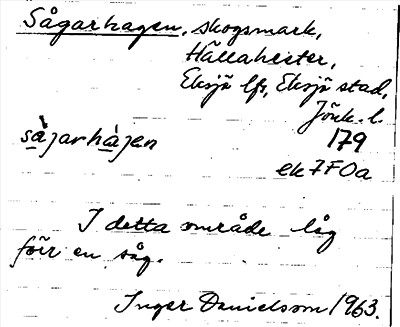 Sågarhagen, skogsmark,
Hällahester,
Eksjö lfs, Eksjö stad,
Jönk. l.
sàjarhàjen 179
ek7F0a
I detta område låg
förr en såg.
Inger Danielsson 1963.